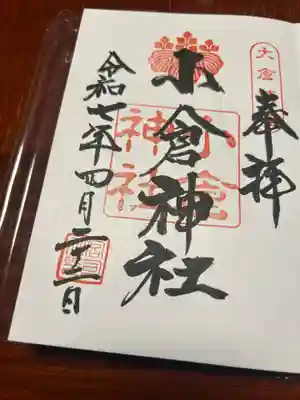 奉拝
小倉神社
小倉神社
令和七年四月二十二日